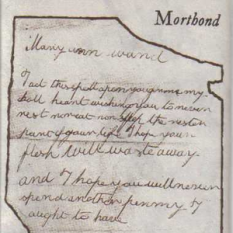 Mortbond
Mary ann wand
I act this spell upon you from my
holl heart wishing you to never
rest nor eat nor sleep the restern
part of your life I hope your
flesh will waste away
and I hope you will never
spend another penny I
ought to have